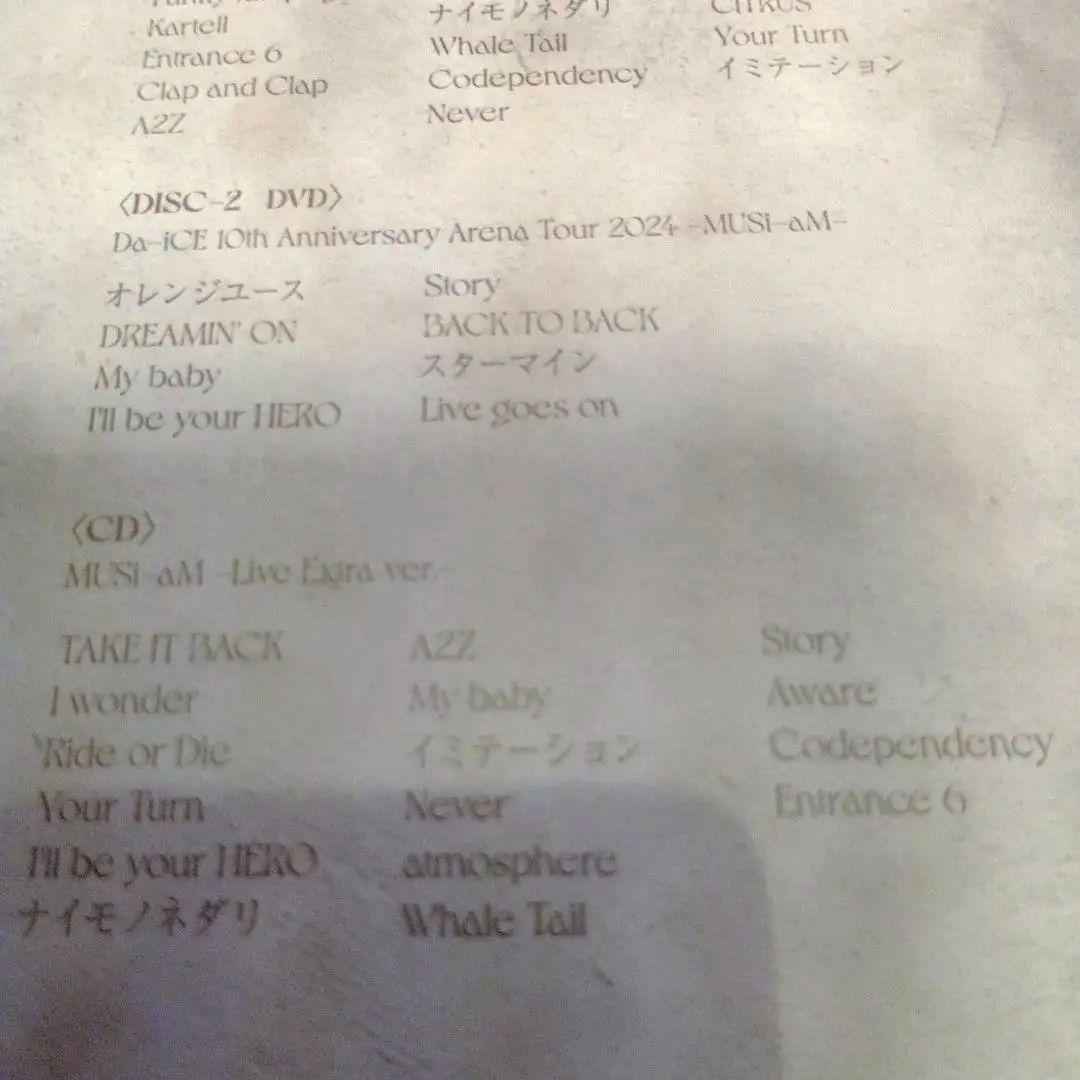 Kartell
Entrance 6
Clap and Clap
A2Z
ナイモノネダリ
Whale Tail
Codependency
Never
CITRUS
Your Turn
イミテーション
〈DISC-2 DVD〉
Da-iCE 10th Anniversary Arena Tour 2024 -MUSi-aM-
オレンジユース
DREAMIN' ON
My baby
I'll be your HERO
Story
BACK TO BACK
スターマイン
Live goes on
〈CD〉
MUSi-aM -Live Extra ver.-
TAKE IT BACK
I wonder
Ride or Die
Your Turn
I'll be your HERO
ナイモノネダリ
A2Z
My baby
イミテーション
Never
atmosphere
Whale Tail
Story
Aware
Codependency
Entrance 6